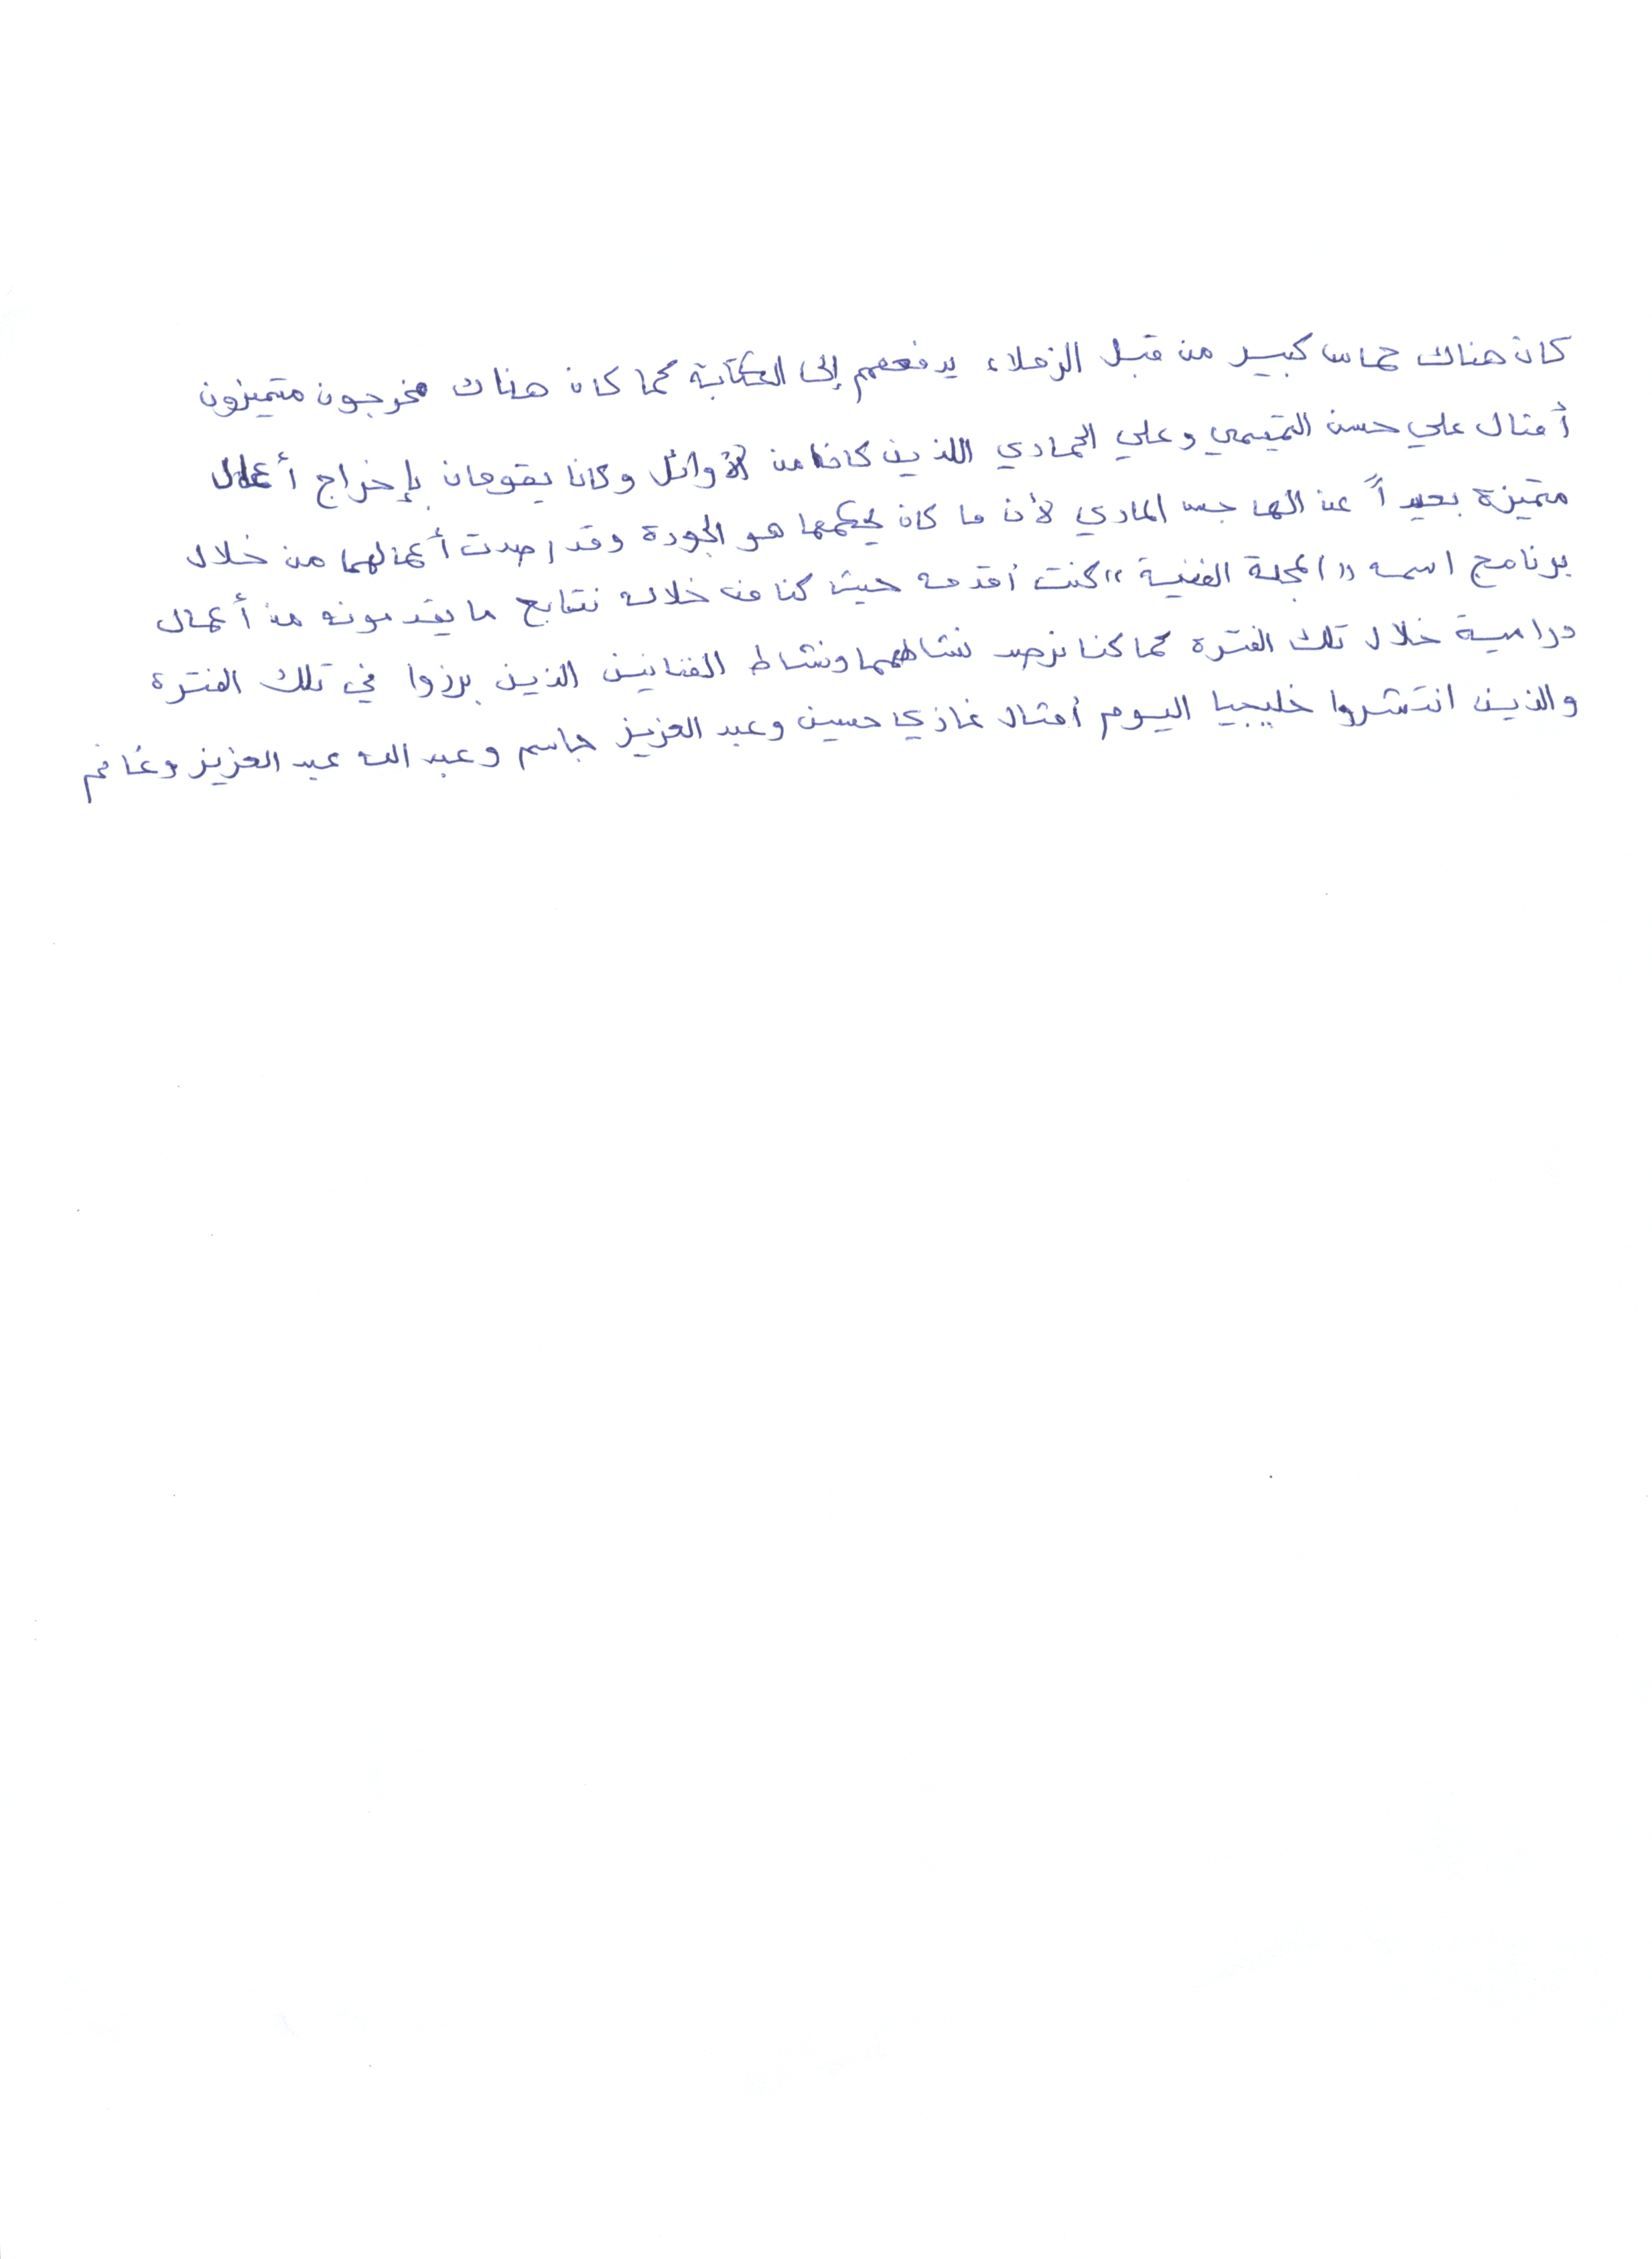 كان هناك حماس كبير من قبل الزملاء يدفعهم إلى الكتابة كما كان هناك مخرجون متميزون
أمثال علي حسن التميمي وعلي الحمادي اللذين كانا من الأوائل وكانا يقومان بإخراج أعمال
متميزة بعيداً عن الهاجس المادي لأن ما كان يحكمها هو الجودة وقد رصدت أعمالهما من خلال
برنامج اسمه «المجلة الفنية» كنت أقدمه حيث كنا من خلاله نتابع ما يقدمونه من أعمال
درامية خلال تلك الفترة كما كنا نرصد نشاطهما ونشاط الفنانين الذين برزوا في تلك الفترة
والذين انتشروا خليجيا اليوم أمثال غازي حسين وعبد العزيز جاسم وعبد الله عبد العزيز وغانم